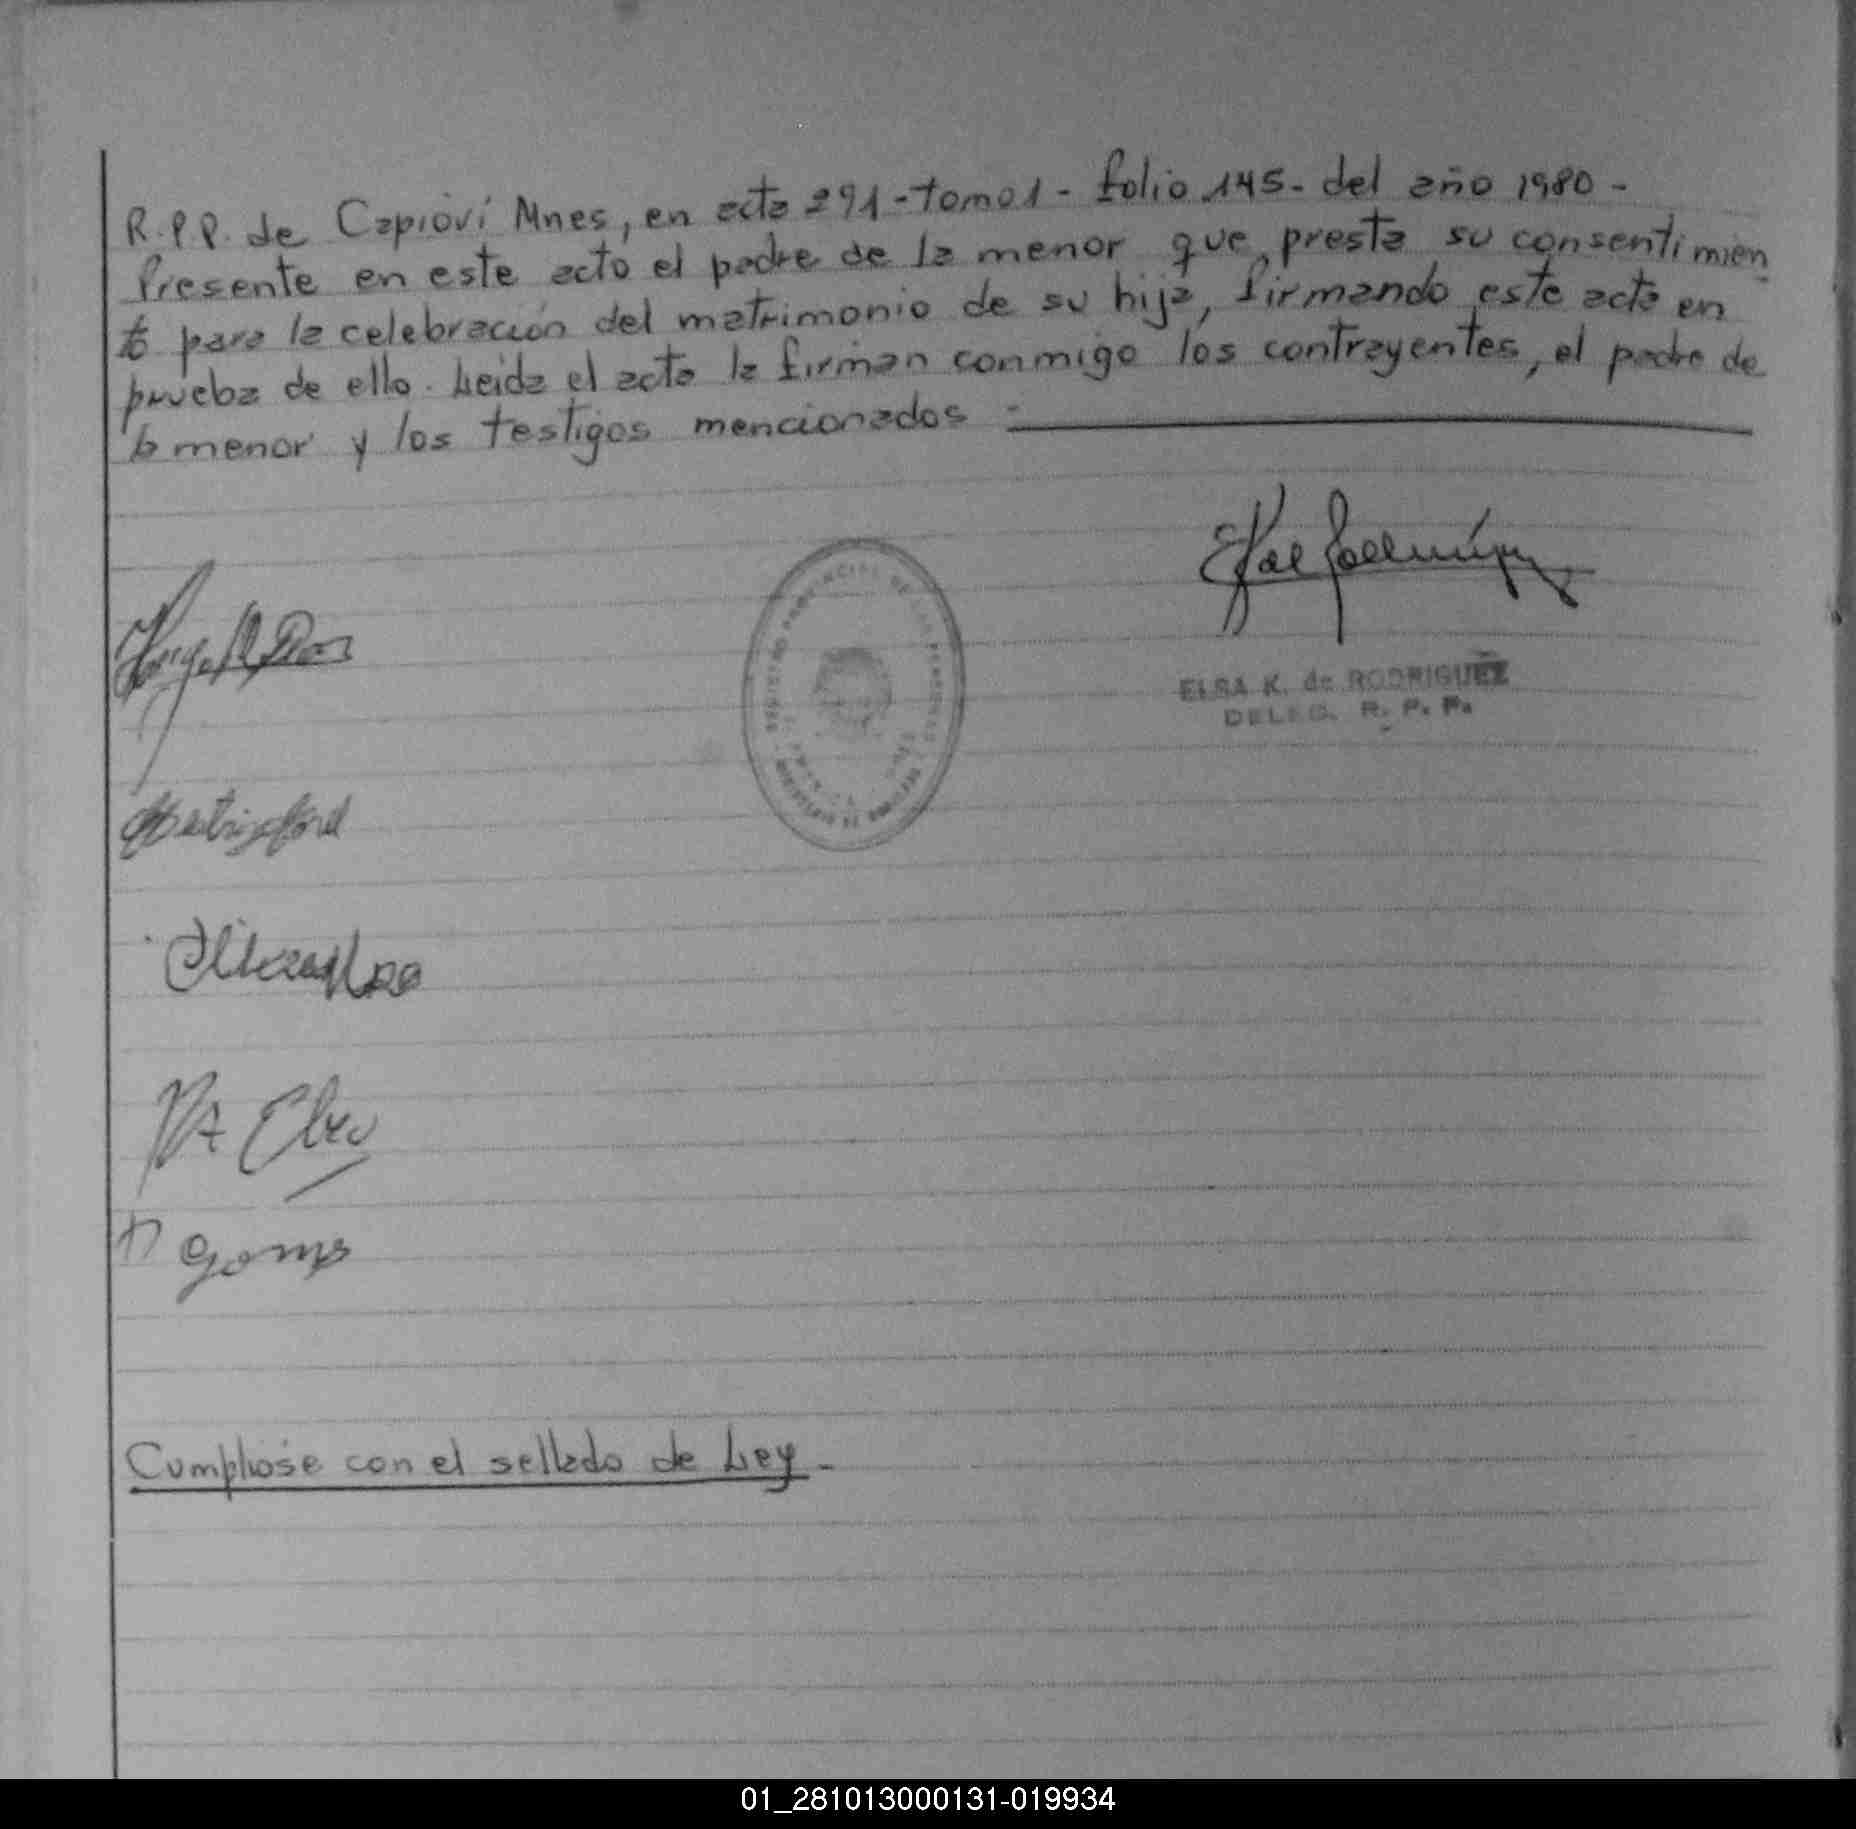 R.P.P. de Capioví Mnes, en acta 291-tomo 1- folio 145- del año 1980-
Presente en este acto el padre de la menor que, presta su consentimien
to para la celebración del matrimonio de su hija, firmando este acta en
prueba de ello. Leida el acta la firman conmigo los contrayentes, el padre de
la menor y los testigos mencionados
REGISTRO PROVINCIAL DE LAS PERSONAS
ELSA K. de RODRIGUEZ
DELEG. R. P. P.
Cumpliose con el sellado de Ley-
01_281013000131-019934